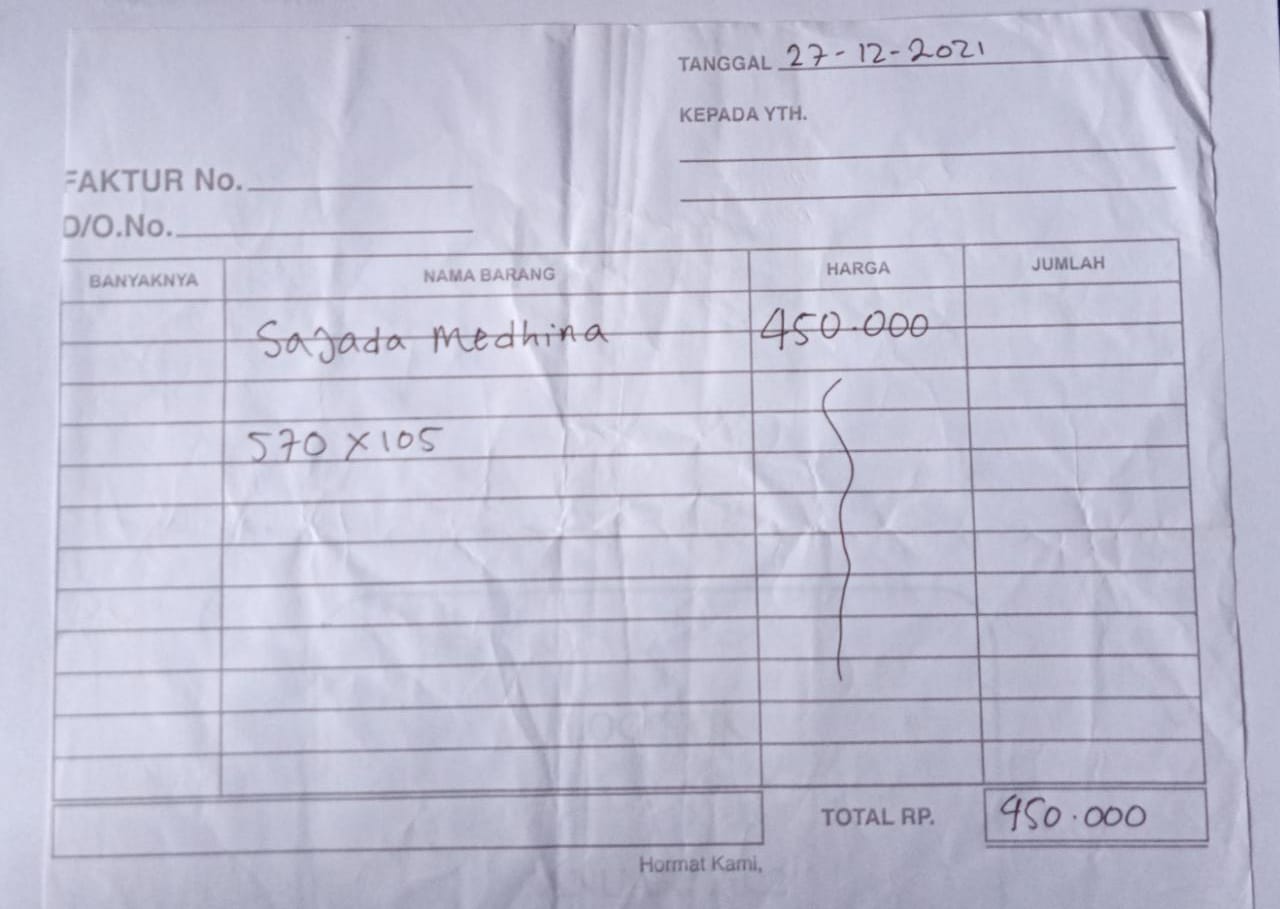 TANGGAL 27-12-2021
KEPADA YTH.
FAKTUR No.
D/O.No.
BANYAKNYA NAMA BARANG HARGA JUMLAH
Sajada Medhina 450.000
570 x 105
TOTAL RP. 450.000
Hormat Kami,